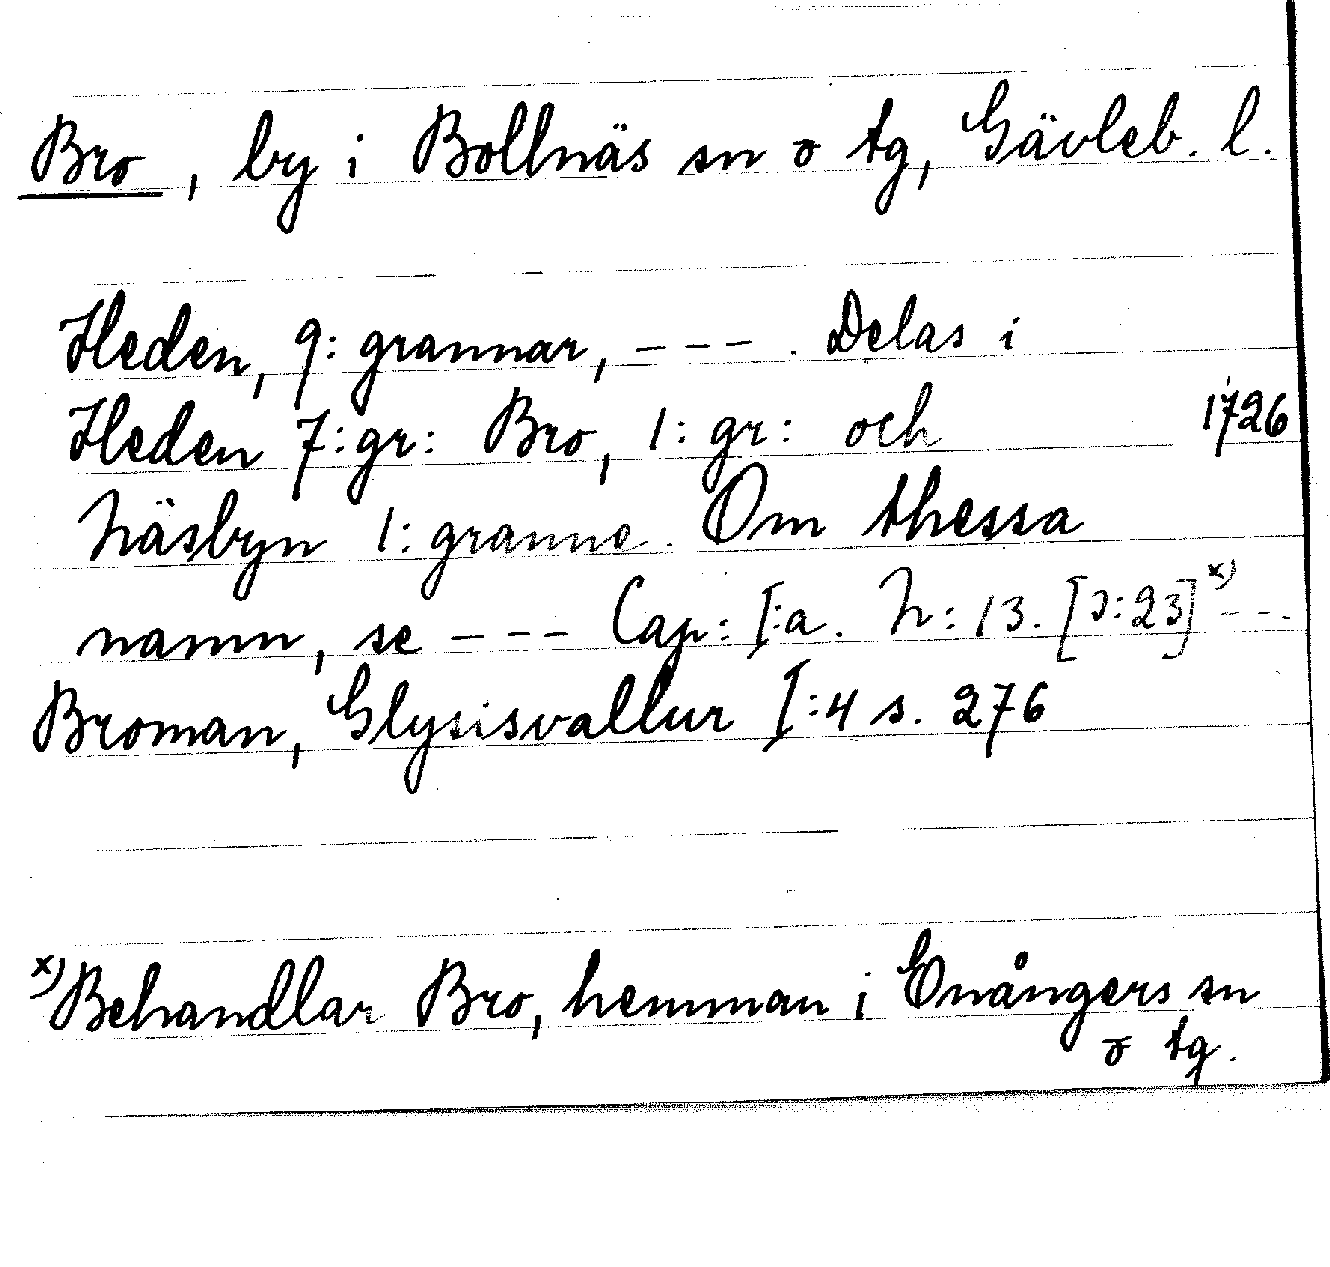 Bro, by i Bollnäs sn o tg, Gävleb. l.
Heden, 9: grannar, - - - . Delas i
Heden 7: gr: Bro, 1: gr: och 1726
Näsbyn 1: granne. Om thessa
namn, se - - - Cap: I:a. N: 13. [I:23] x) - - -
Broman, Glysisvallur I:4 s. 276
x) Behandlar Bro, hemman i Enångers sn
o tg.